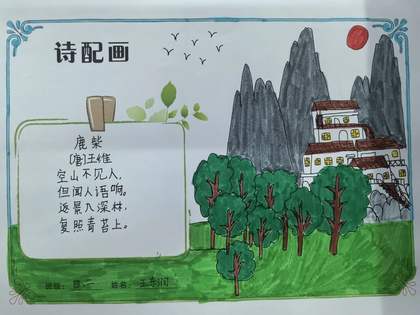 诗配画
鹿柴
[唐]王维
空山不见人,
但闻人语响。
返景入深林,
复照青苔上。
班级: 姓名: 王